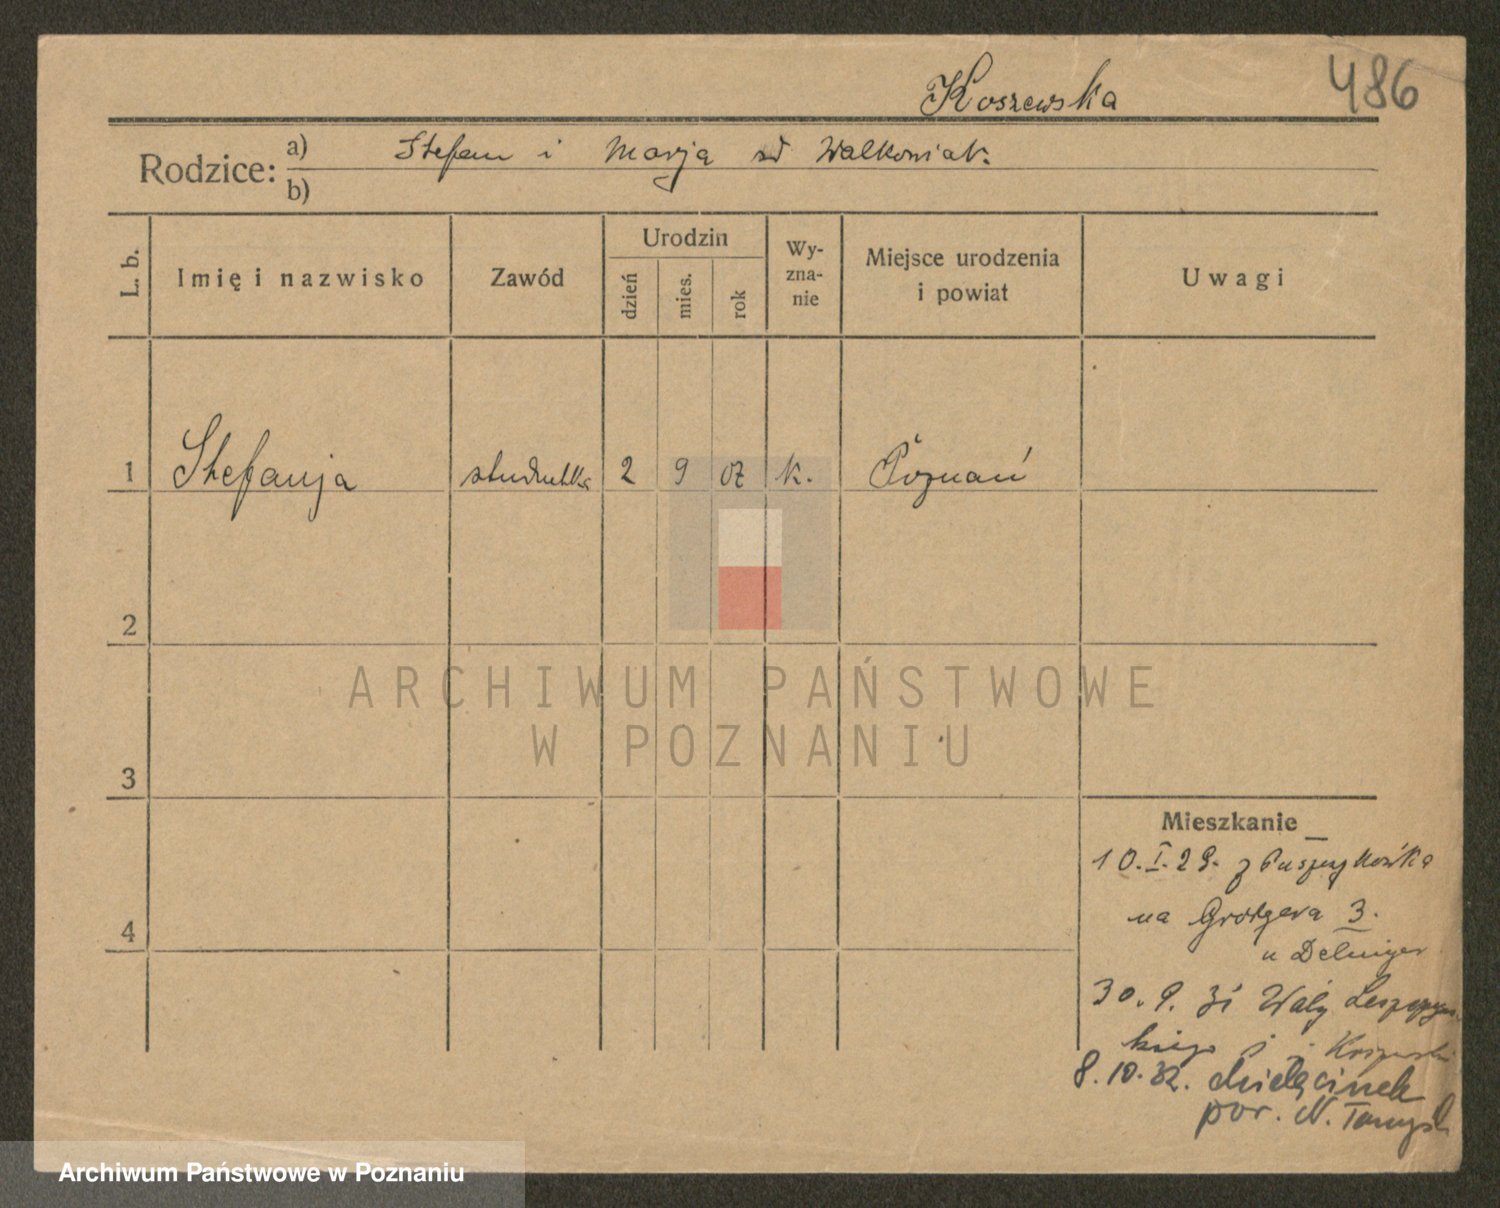 Koszewska
486
Rodzice: a) Stefan i Marja zd Walkowiak.
b)
L. b. Imię i nazwisko Zawód Urodzin dzień mies. rok Wy-zna-nie Miejsce urodzenia i powiat Uwagi
1 Stefanja studentka 2 9 07 k. Poznań
2
ARCHIWUM PAŃSTWOWE
W POZNANIU
3
Mieszkanie
10.I.29. z Puszczykówka
na Grotgera 3.
4
u Delniger
30. 9. 31 Wały Leszczyńs
kiego
8.10.32.
por. N. Tomyśl
Archiwum Państwowe w Poznaniu